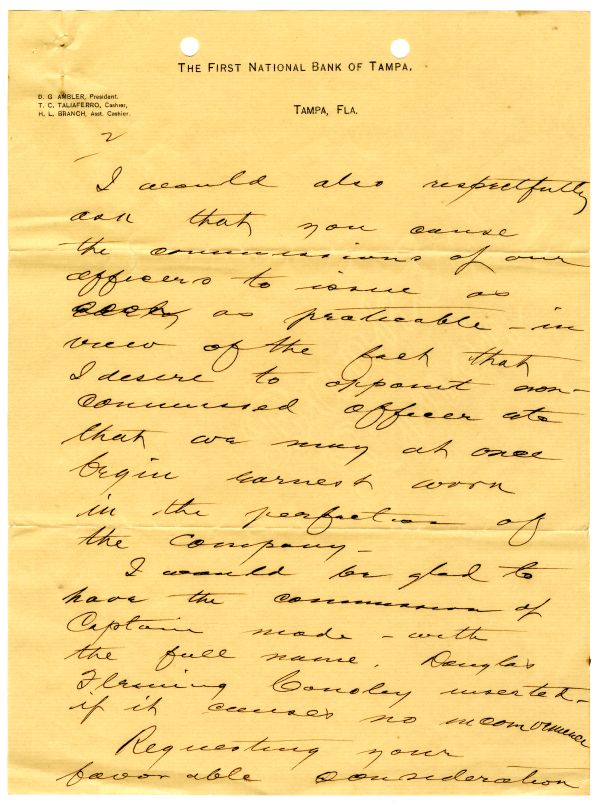 THE FIRST NATIONAL BANK OF TAMPA.
D. G. AMBLER, President.
T. C. TALIAFERRO, Cashier,
H. L. BRANCH, Asst. Cashier.
TAMPA, FLA.
2
I would also respectfully
ask that you cause
the commissions of our
officers to issue as
early as praticable - in
view of the fact that
I desire to appoint non-
commissed officer etc
that we may at once
begin earnest work
in the perfection of
the Company -
I would be glad to
have the commission of
Captain made - with
the full name. Douglas
Fleming Conoley inserted -
if it causes no inconvenience
Requesting your
favorable consideration